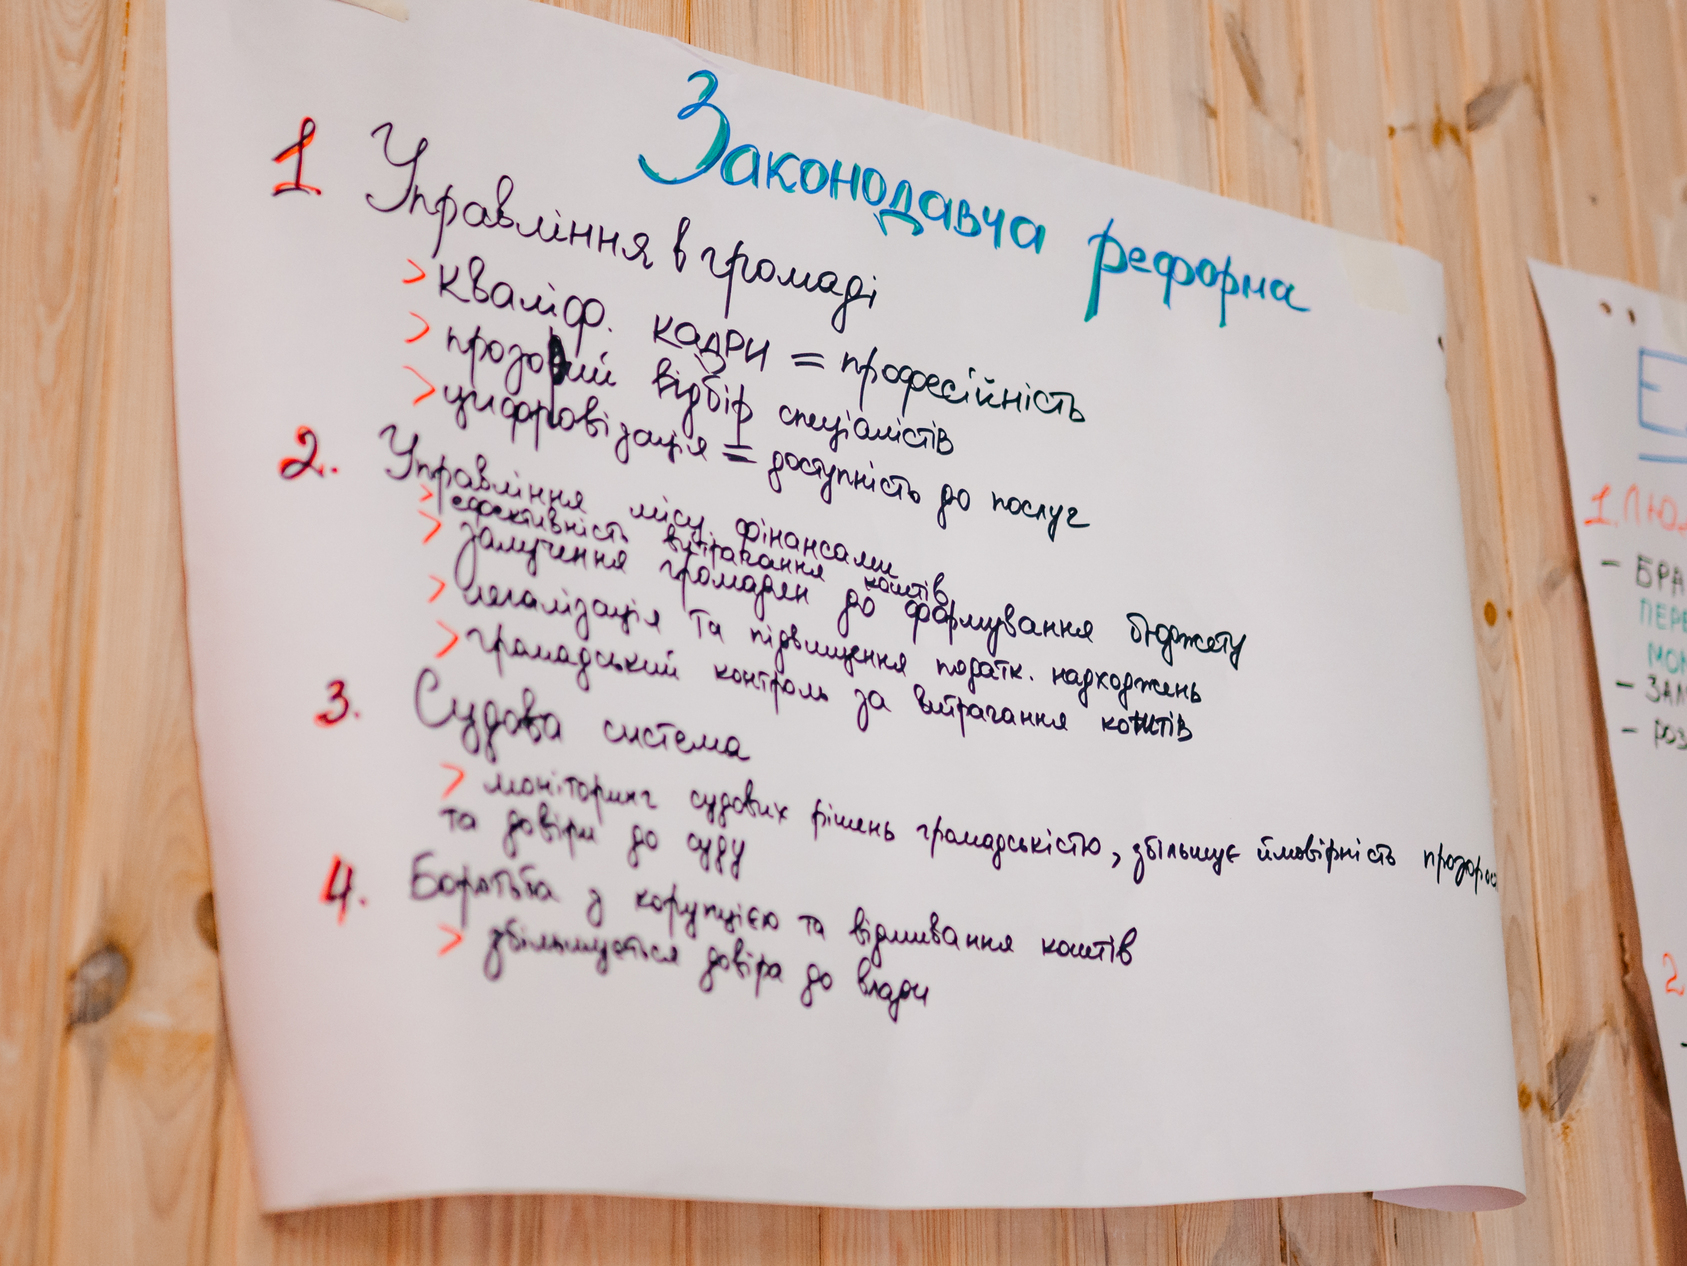 Законодавча реформа
1 Управління в громаді
> кваліф. кадри = професійність
> прозорий відбір спеціалістів
> цифровізація = доступність до послуг
2. Управління місц. фінансами
> ефективність витрачання коштів
> залучення громадян до формування бюджету
> легалізація та підвищення податк. надходжень
> громадський контроль за витрачання коштів
3. Судова система
> моніторинг судових рішень громадськістю, збільшує ймовірність прозорос
та довіри до суду
4. Боротьба з корупцією та відмивання коштів
> збільшується довіра до влади
1. Лю
- БРА
ПЕРЕ
МОН
- ЗАЛ
- роз
2